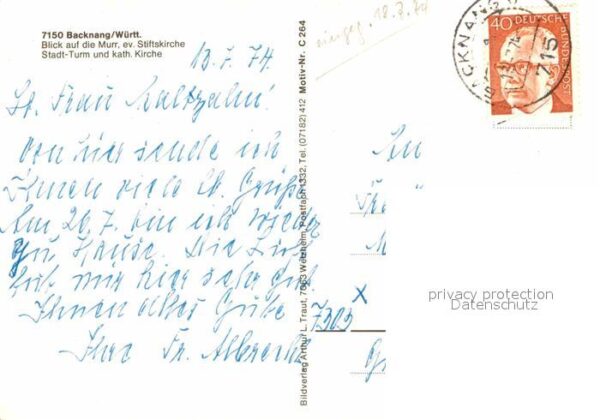 7150 Backnang/Württ.
Blick auf die Murr, ev. Stiftskirche
Stadt-Turm und kath. Kirche
13.7.74
Frau
von hier sende ich
Ihnen viele lb. Grüße
Am 20.7. bin ich wieder
zu Hause. Die
hat mir hier sehr gut
Ihnen alles Gute
Ihre Fr. Albrecht
Bildverlag Arthur L. Traut, 7063 Welzheim, Postfach 1332, Tel. (07182) 412 Motiv-Nr. C 264
eingeg. 18.7.74
40 DEUTSCHE BUNDESPOST
BACKNANG
715
An
x
7305
privacy protection
Datenschutz